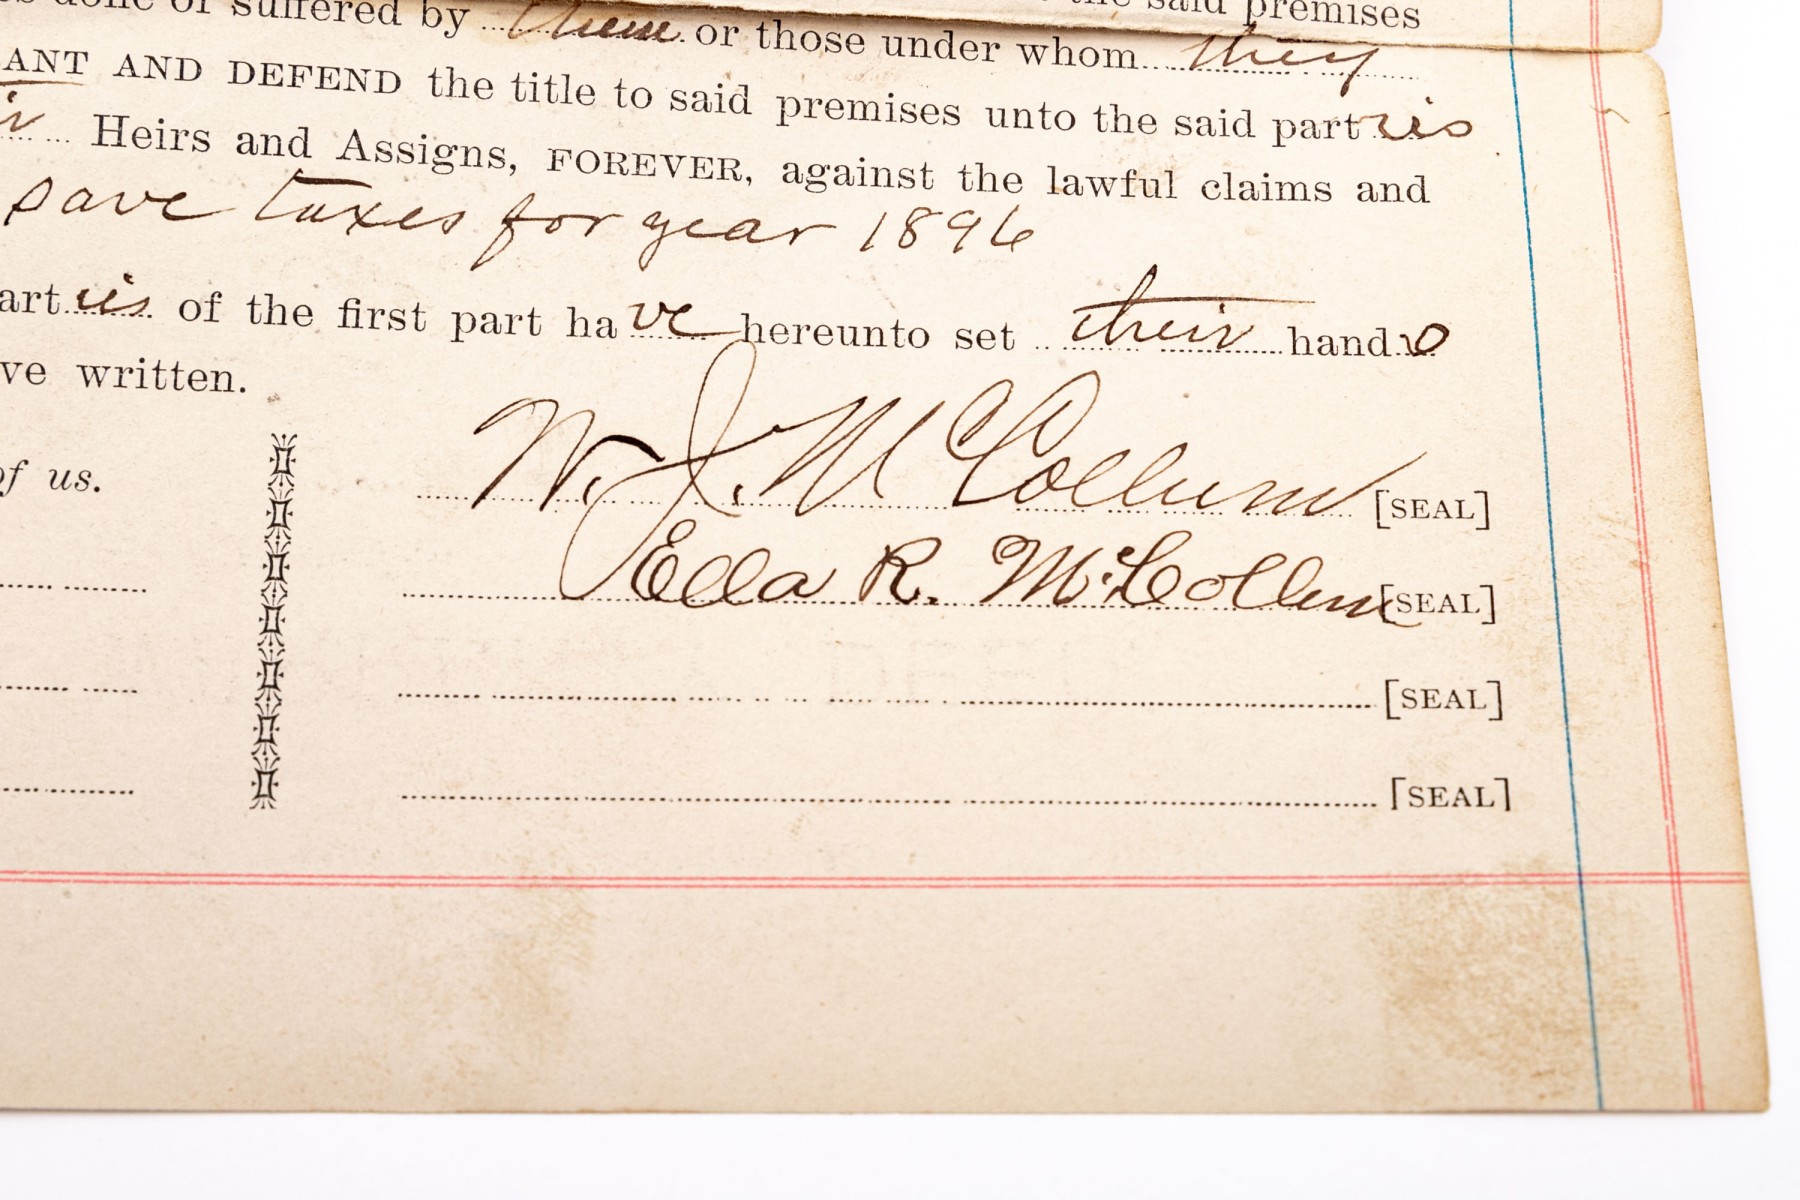 done or suffered by them or those under whom they
the said premises
ANT AND DEFEND the title to said premises unto the said parties
Heirs and Assigns, FOREVER, against the lawful claims and
save taxes for year 1896
art ies of the first part have hereunto set their hands
ve written.
of us.
W. J. McCollum [SEAL]
Ella R. McCollum [SEAL]
[SEAL]
[SEAL]